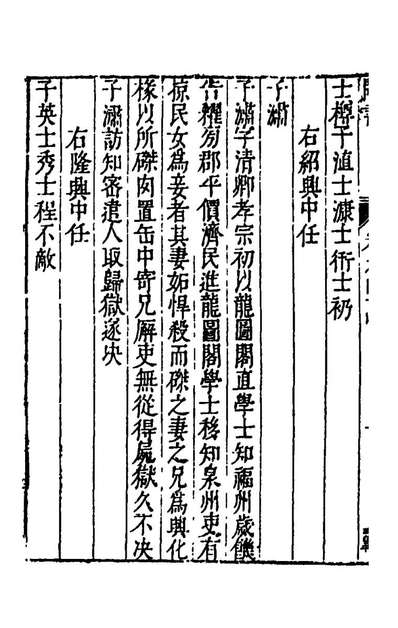 士子士士衎士礽
右紹興中任
子潚
子潚字清卿孝宗初以龍圖閣直學士知福州歲饑
告糴旁郡平價濟民進龍圖閣學士移知泉州吏有
掠民女為妾者其妻妬悍殺而磔之妻之兄為興化
掾以所磔肉置缶中寄兄廨吏無從得屍獄久不决
子潚訪知密遣人取歸獄遂决
右隆興中任
子英士秀士程不敵